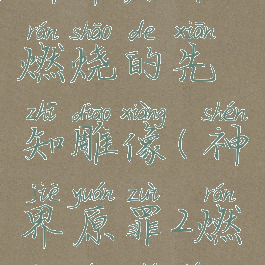 rán shāo de xiān
燃烧的先
zhī diāo xiàng shén
知雕像(神
jiè yuán zuì rán
界原罪2燃